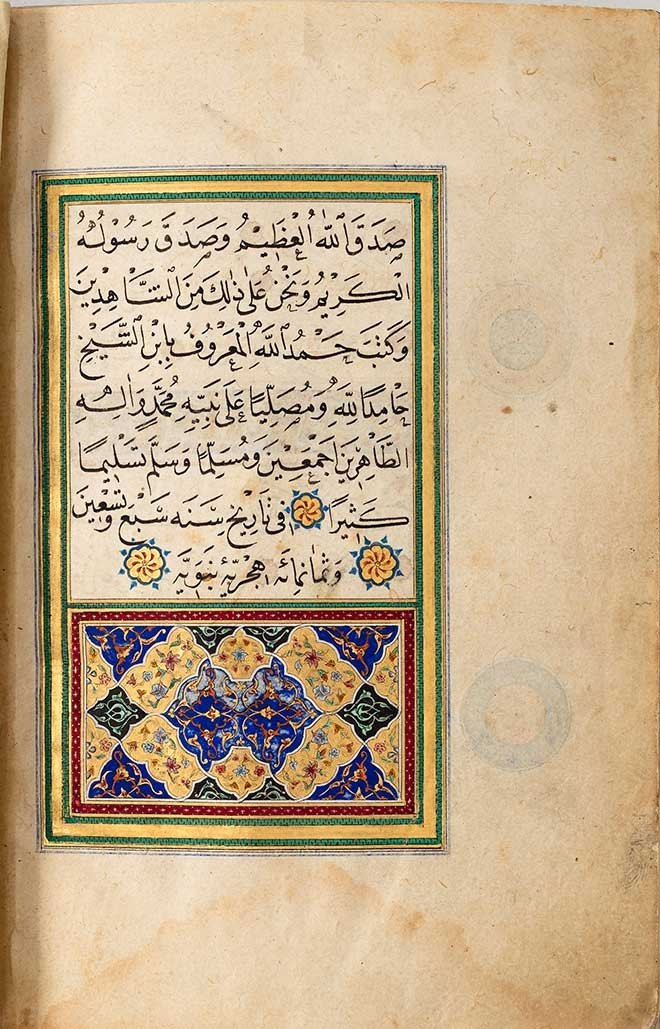 صَدَقَ اللّٰهُ الْعَظِيمُ وَصَدَقَ رَسُولُهُ
الْكَرِيمُ وَنَحْنُ عَلٰى ذٰلِكَ مِنَ الشَّاهِدِينَ
وَكَتَبَ حَمْدُ اللّٰهِ الْمَعْرُوفُ بِابْنِ الشَّيْخِ
حَامِدًا لِلّٰهِ وَمُصَلِّيًا عَلٰى نَبِيِّهِ مُحَمَّدٍ وَاٰلِهِ
الطَّاهِرِينَ اَجْمَعِينَ وَمُسَلِّمًا وَسَلَّمَ تَسْلِيمًا
كَثِيرًا فِى تَارِيخِ سَنَه سَبْعَ وَتِسْعِينَ
وَثَمَانْمِائَه هِجْرِيَّه نَبَوِيَّه